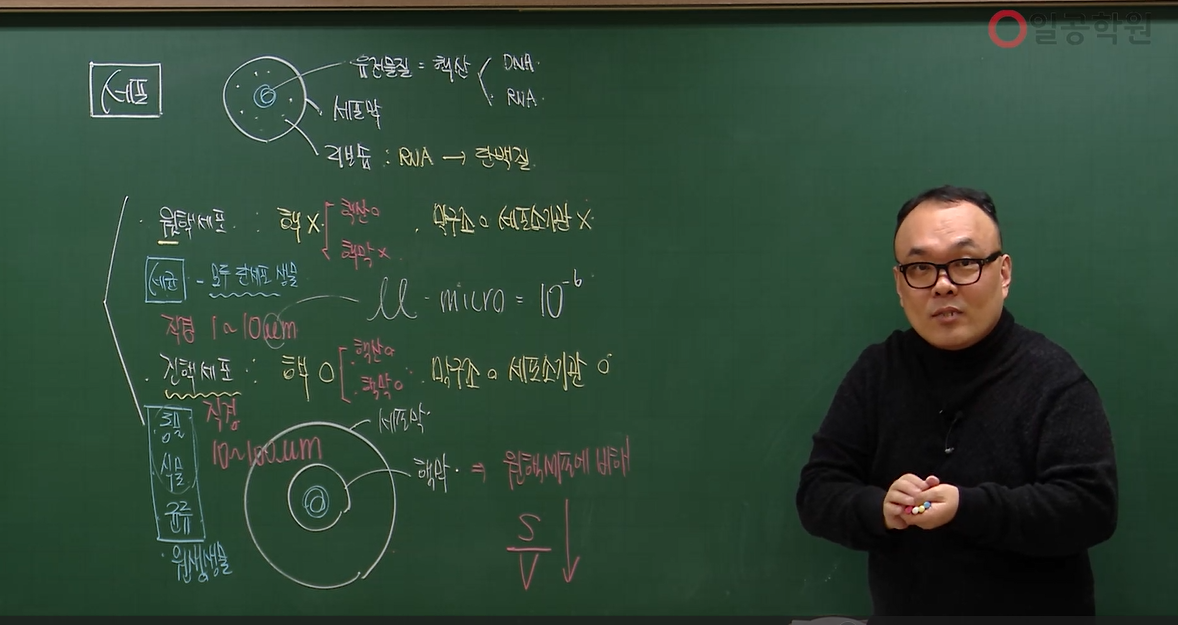 일공학원
세포
유전물질 = 핵산 < DNA
RNA
세포막
리보솜 : RNA → 단백질
· 원핵세포 : 핵 X [ 핵산 o
핵막 x
· 막구조 o 세포소기관 X
세균 - 모두 단세포 생물
μ · micro = 10⁻⁶
직경 1~10μm
· 진핵세포 : 핵 O [ 핵산 o
핵막 o
막구조 o 세포소기관 O
동물
식물
균류
· 원생생물
직경
10~100μm
세포막
핵막 ⇒ 원핵세포에 비해
S/V ↓